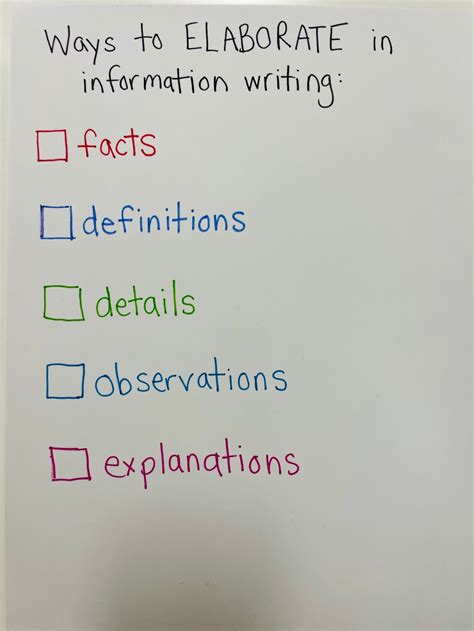 Ways to ELABORATE in
information writing:
facts
definitions
details
observations
explanations